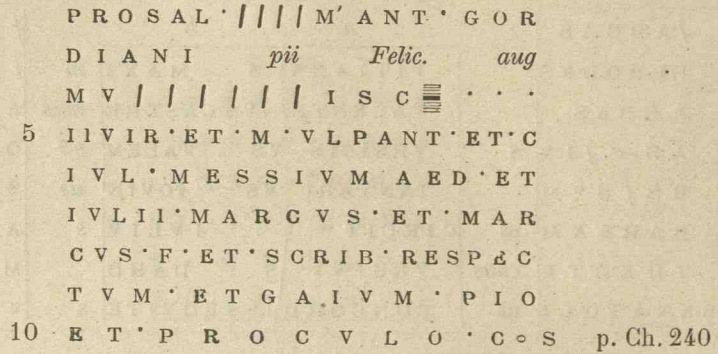 PROSAL·////M'ANT·GOR
DIANI pii Felic. aug
MV//////ISC · · ·
5 IIVIR·ET·M·VLPANT·ET·C
IVL·MESSIVM AED·ET
IVLII·MARCVS·ET·MAR
CVS·F·ET·SCRIB·RESPEC
TVM·ETGAIVM·PIO
10 ET·PROCVLO·COS p. Ch. 240